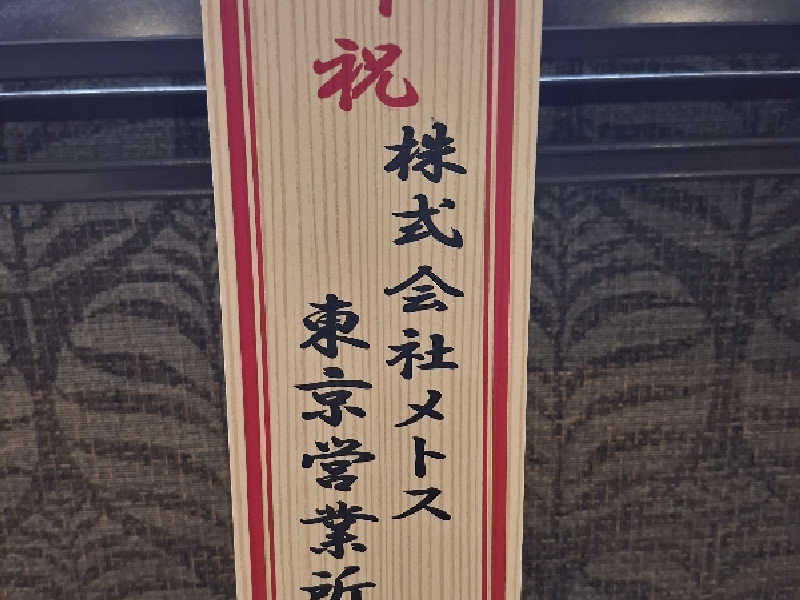 祝
株式会社メトス
東京営業所